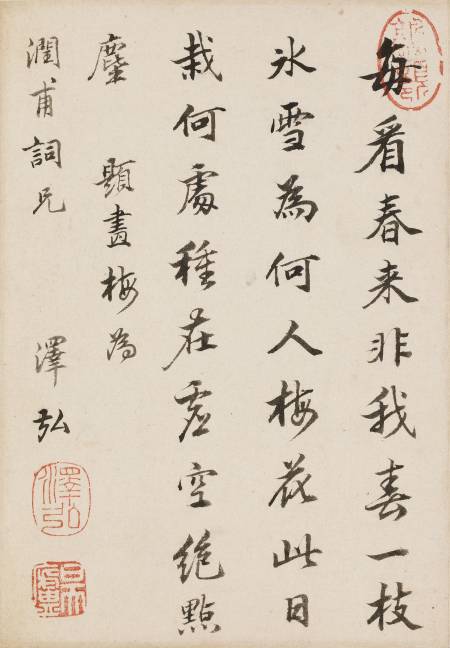 每看春来非我春一枝
氷雪為何人梅花此日
栽何處種在虛空絶點
塵　題畫梅為
潤甫詞兄
澤弘
澤弘